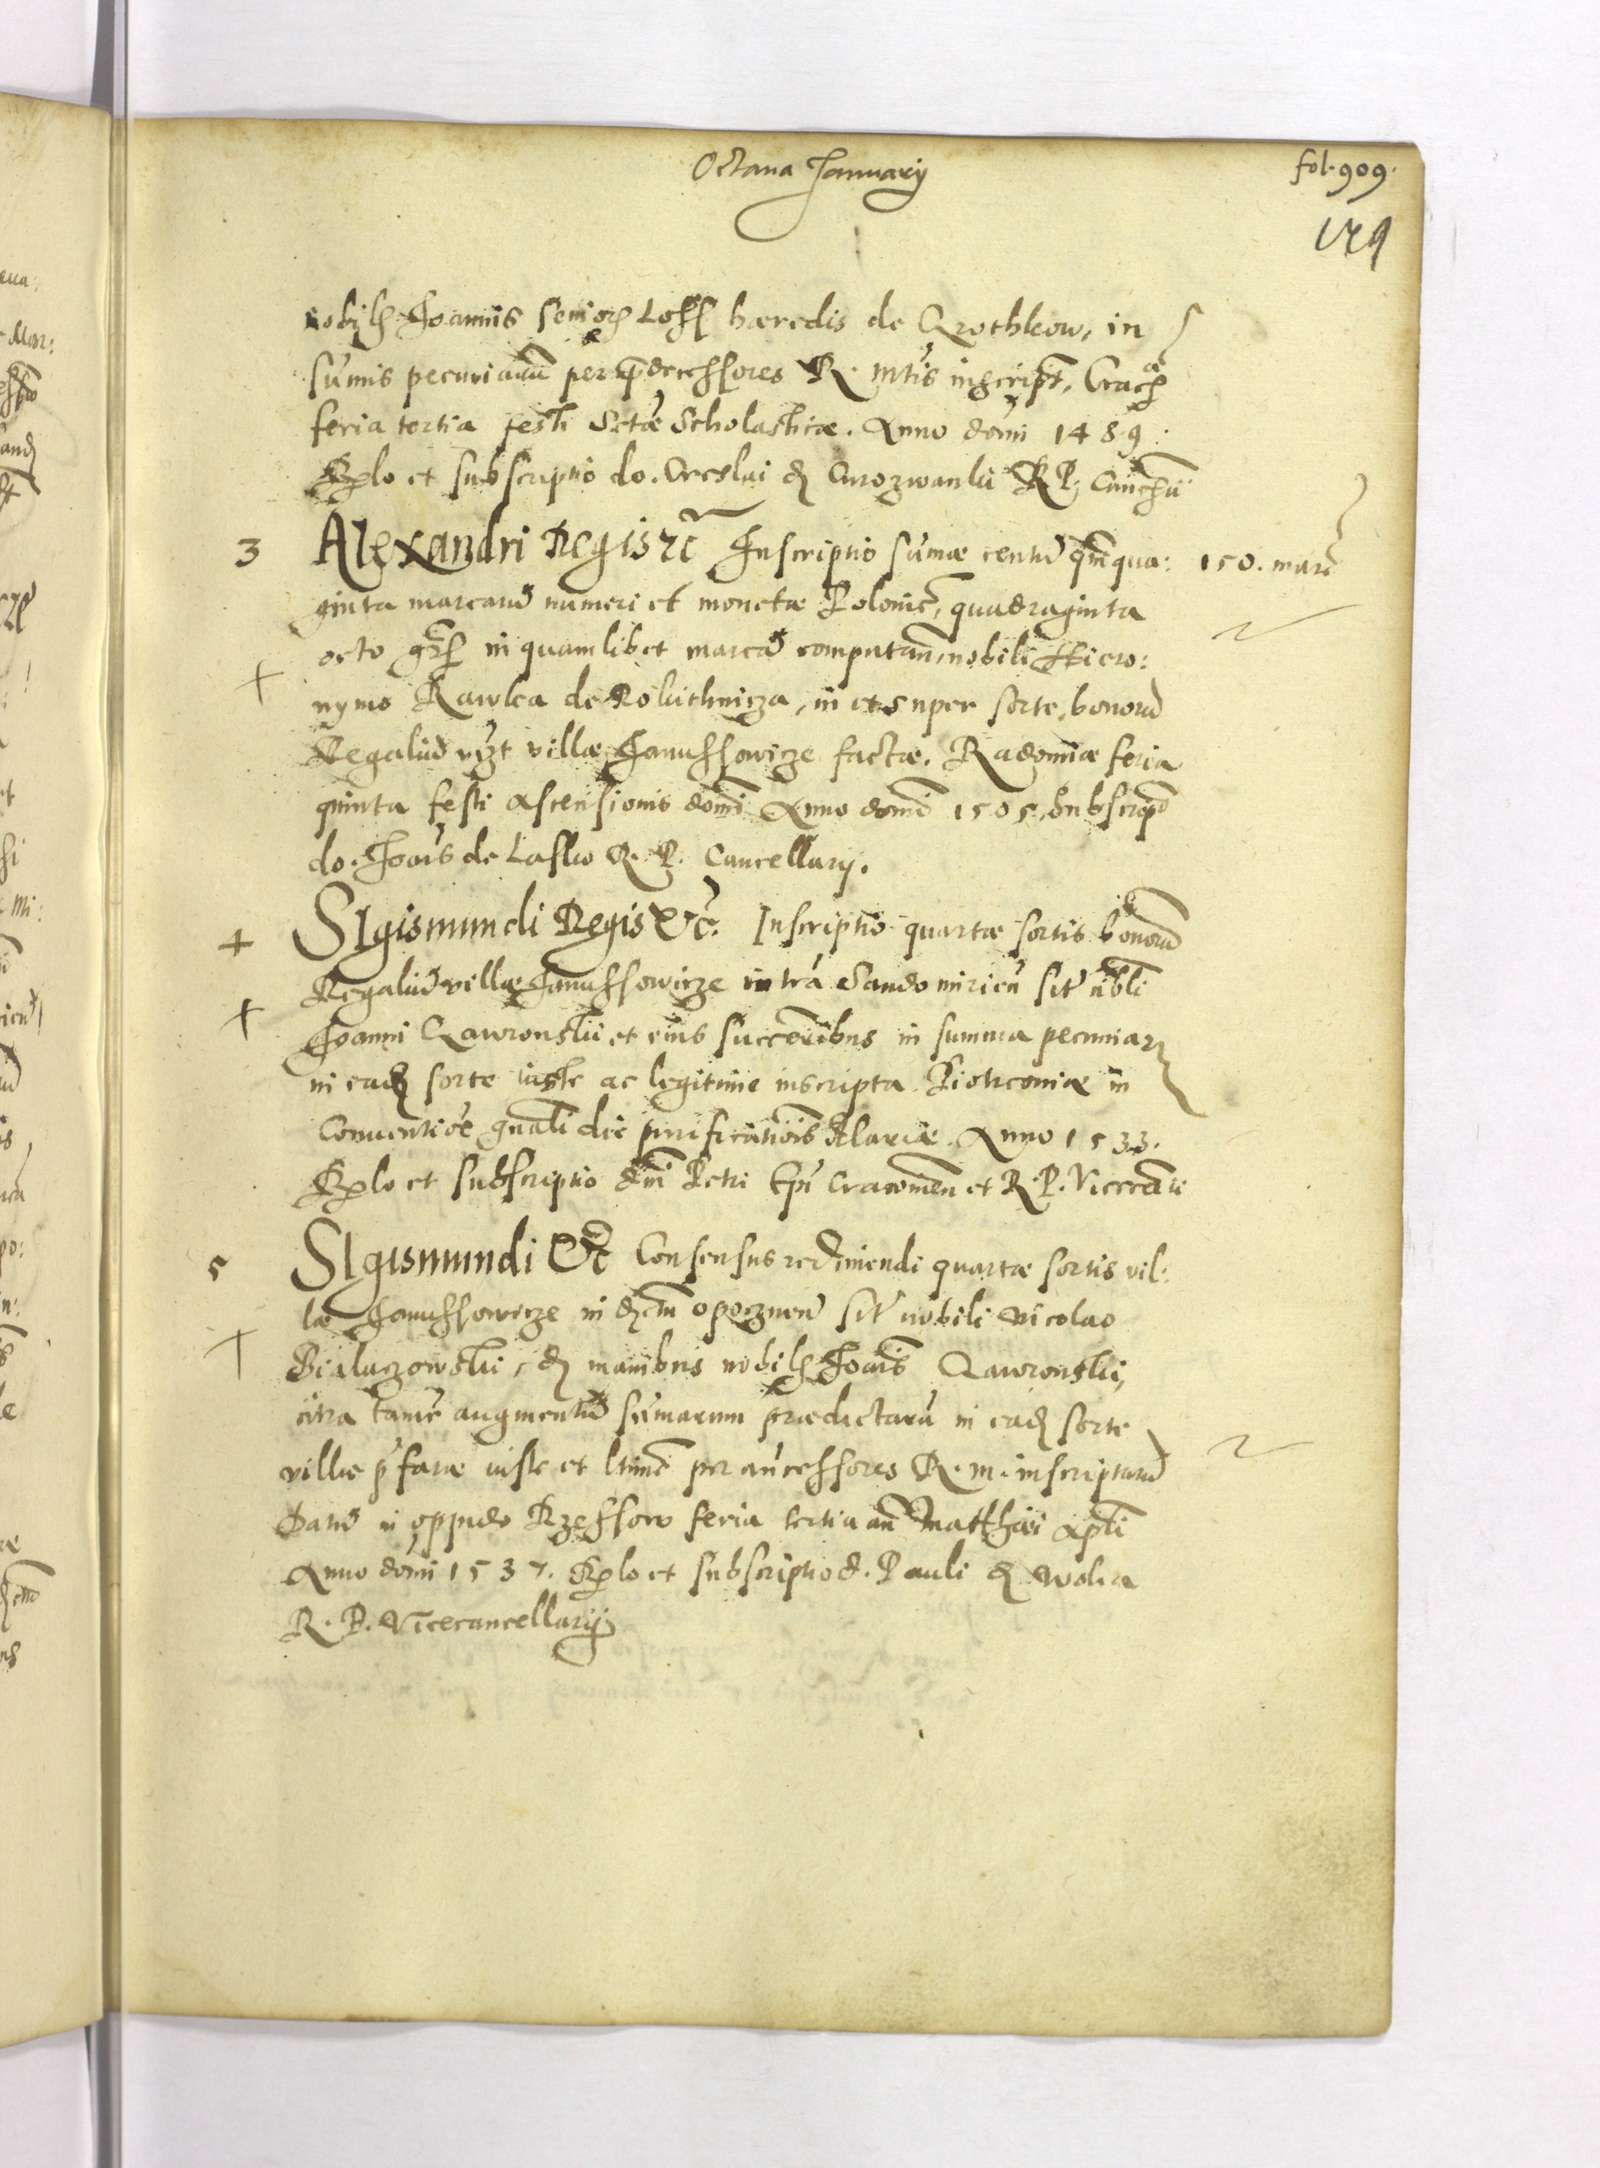 Octaua January
fol. 909.
nobilis Joannis senioris haeredis de Grothkow, in
sumis pecuniarum per praedecessores R. Mtis inscript, Crac
feria tertia festi Sctae Scholasticae. Anno domi 1489.
et subscriptio do. Creslai de Curozwanki R. P. Cancell
3 Alexandri Regis etc Inscriptio sumae centu quinqua: 150. marc
ginta marcaru numeri et monetae Polonic, quadraginta
octo gros in quamlibet marca computan, nobili Hiero:
nymo Rawka de in et super sorte, bonoru
Regaliu vizt villae Janussowicze factae. Radomiae feria
quinta festi Ascensionis domi Anno domi 1505. Subscrip
do. Joanis de Lasko R. P. Cancellary.
Sigismundi Regis Etc. Inscriptio quartae sortis bonoru
Regaliu villae Janussowicze in tra Sandomirien sit nbli
Joanni Gawronskii et eius successoribus in summa pecuniar
in eade sorte iuste ac legitime inscripta Piotrconiae in
Conuentioe gnali die purificationis Mariae. Anno 1533.
et subscriptio dni Petri Epi Cracouien et R. P. Vicecan
5 Sigismundi Etc Consensus redimendi quartae sortis vil:
lae Janussowicze in opoznen sit nobili Nicolao
Bialaczowskii, de manibus nobilis Joanis Gawronskii,
citra tame augmentu sumarum praedictaru in eade sorte
villae p fatae iuste et ltime per ancessores R. M. inscriptaru
Datu in oppido Rzessow feria tertia an Matthaei Apli
Anno domi 1537. et subscriptio d. Pauli de Wolia
R. P. Vicecancellarij